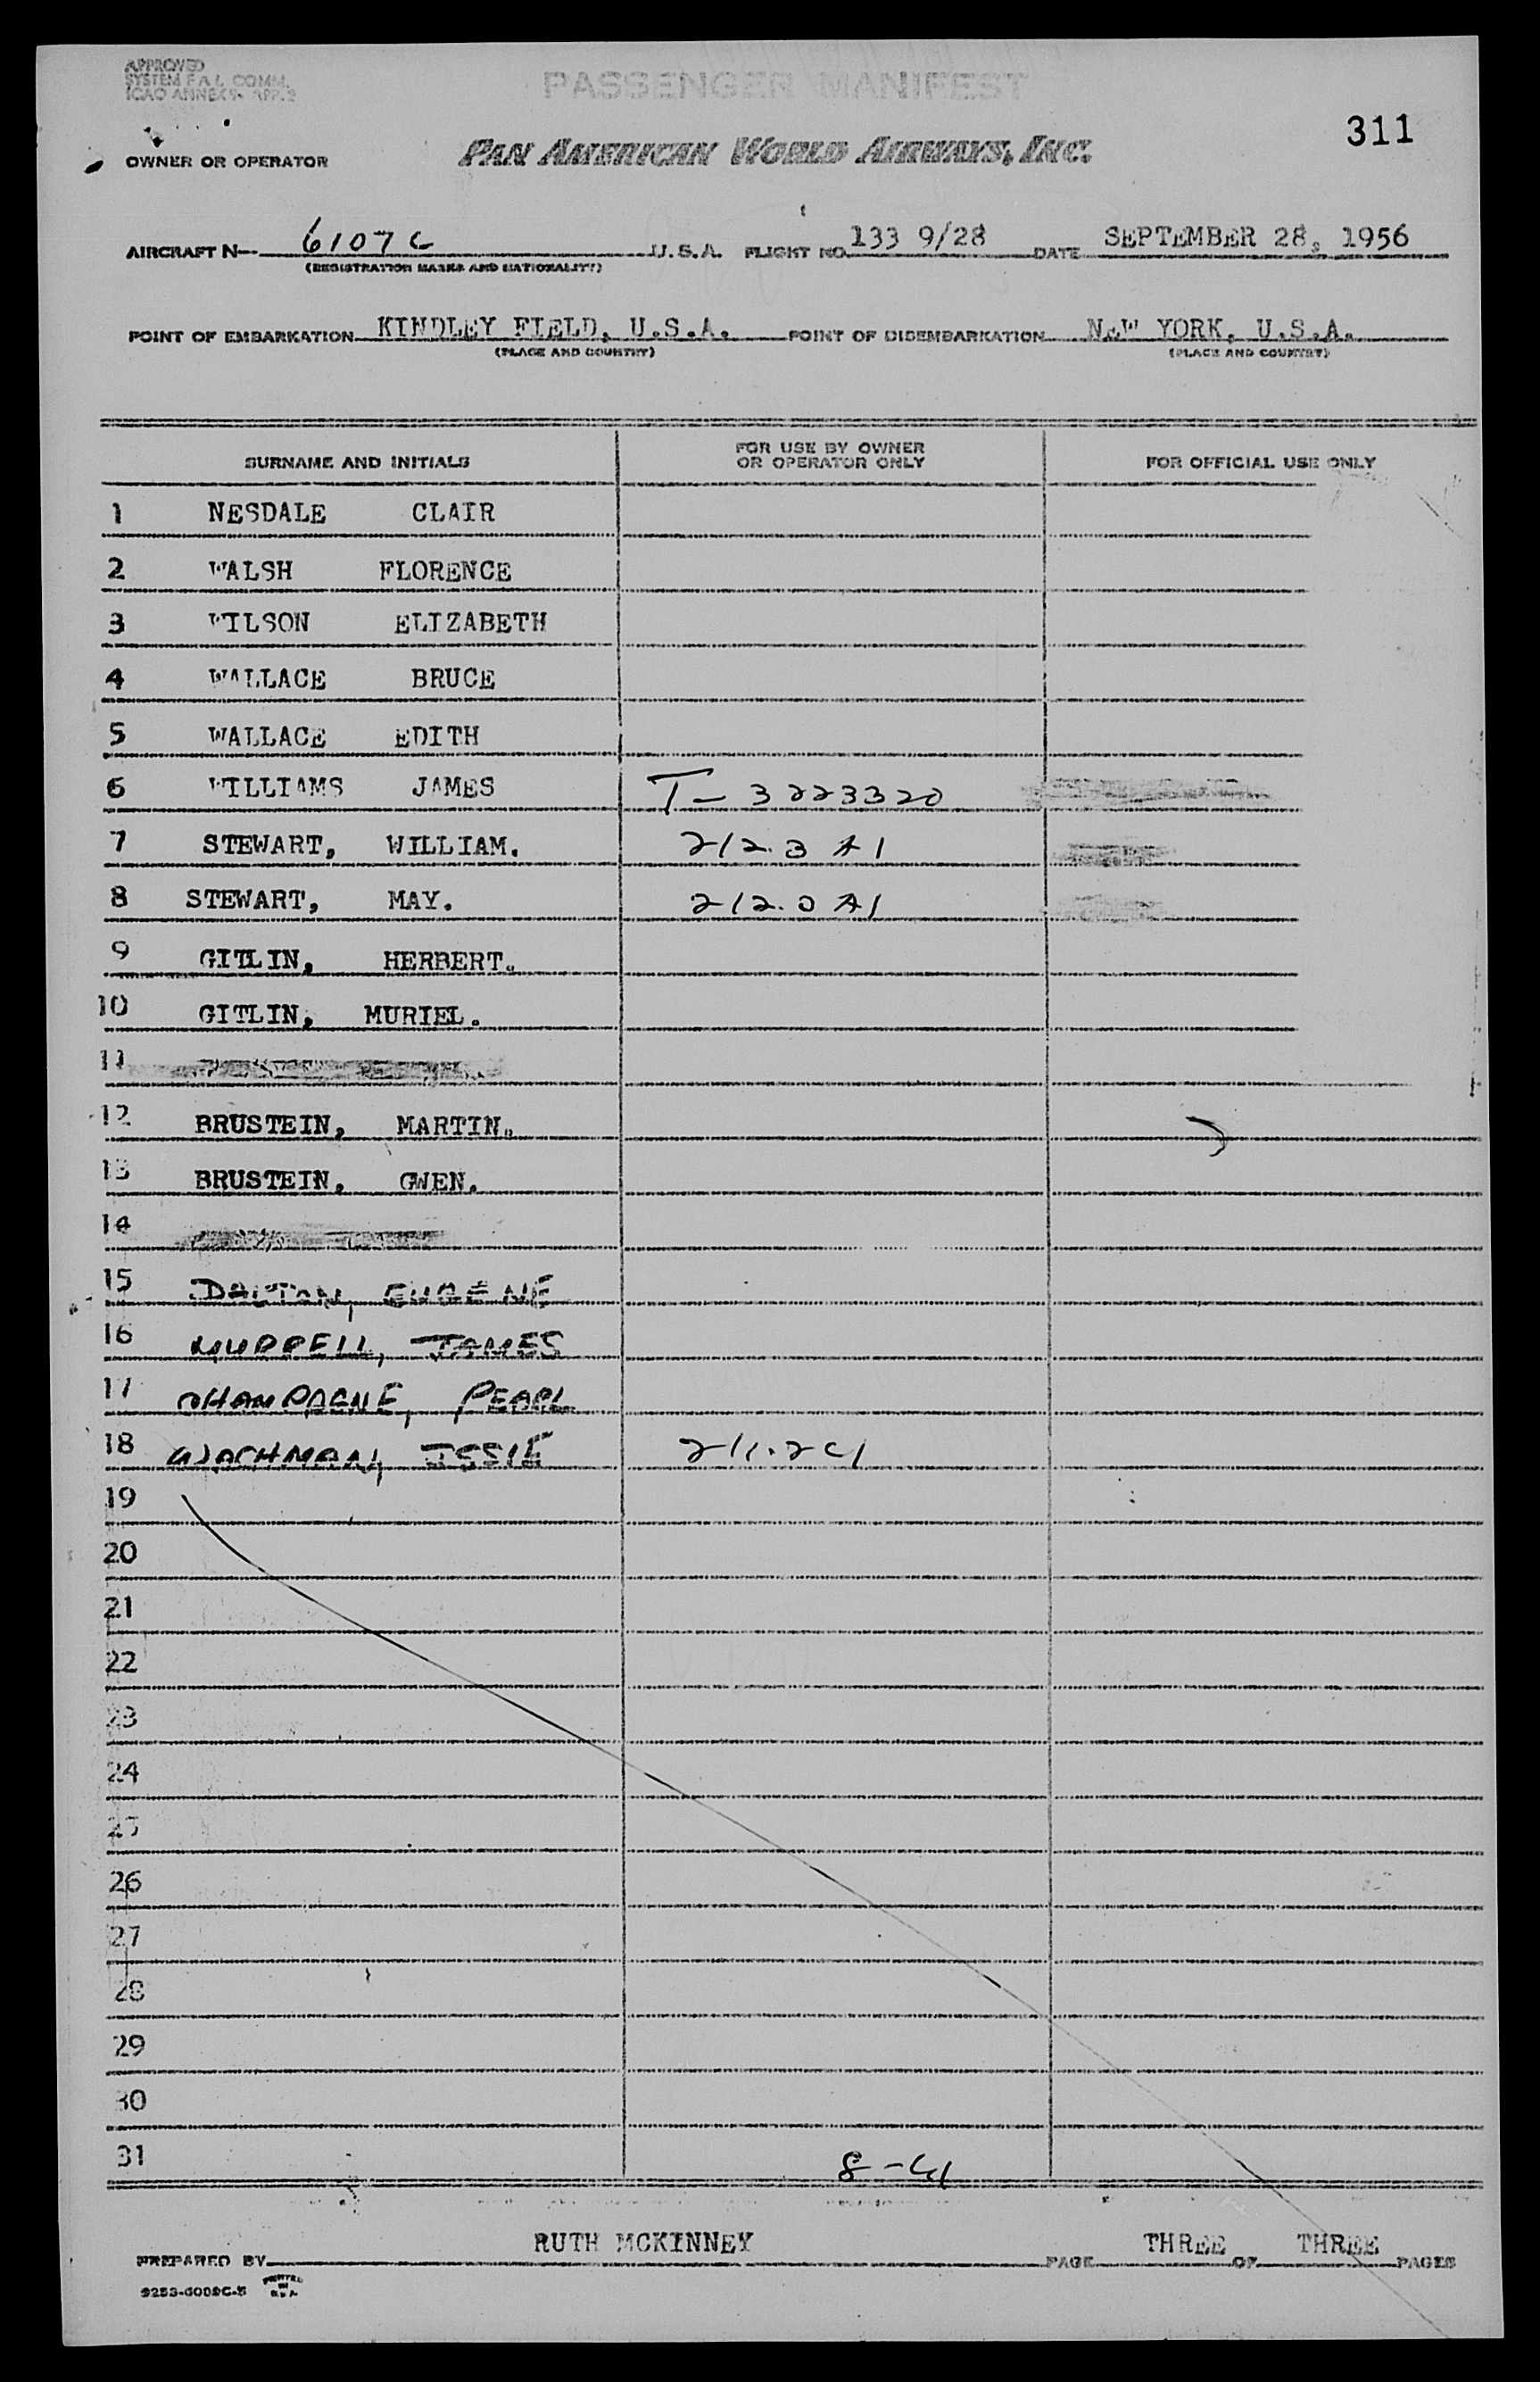 APPROVED
SYSTEM F A L COMM.
ICAO ANNEX 9- APP. 2
PASSENGER MANIFEST
311
OWNER OR OPERATOR PAN AMERICAN WORLD AIRWAYS, INC.
AIRCRAFT N- 6107C U.S.A. FLIGHT NO. 133 9/28 DATE SEPTEMBER 28, 1956
(REGISTRATION MARKS AND NATIONALITY)
POINT OF EMBARKATION KINDLEY FIELD, U.S.A. POINT OF DISEMBARKATION NEW YORK, U.S.A.
(PLACE AND COUNTRY) (PLACE AND COUNTRY)
SURNAME AND INITIALS FOR USE BY OWNER OR OPERATOR ONLY FOR OFFICIAL USE ONLY
1 NESDALE CLAIR
2 WALSH FLORENCE
3 WILSON ELIZABETH
4 WALLACE BRUCE
5 WALLACE EDITH
6 WILLIAMS JAMES T-3223320
7 STEWART, WILLIAM. 212.3 A1
8 STEWART, MAY. 212.0 A1
9 GITLIN, HERBERT.
10 GITLIN, MURIEL.
11
12 BRUSTEIN, MARTIN.
13 BRUSTEIN, GWEN.
14
15 DALTON, EUGENE
16 MURRELL, JAMES
17 CHAMPAGNE, PEARL
18 WACHMAN, ISSIE 211.2C1
19
20
21
22
23
24
25
26
27
28
29
30
31
8-41
PREPARED BY RUTH MCKINNEY PAGE THREE OF THREE PAGES
9253-6009C-5 PRINTED IN U.S.A.